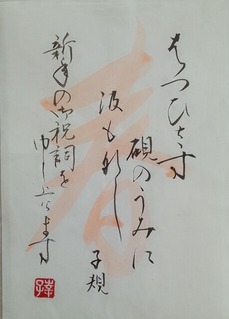 はつひさす
硯のうみに
波もなし
子規
新年の御祝詞を
申し上げます
春